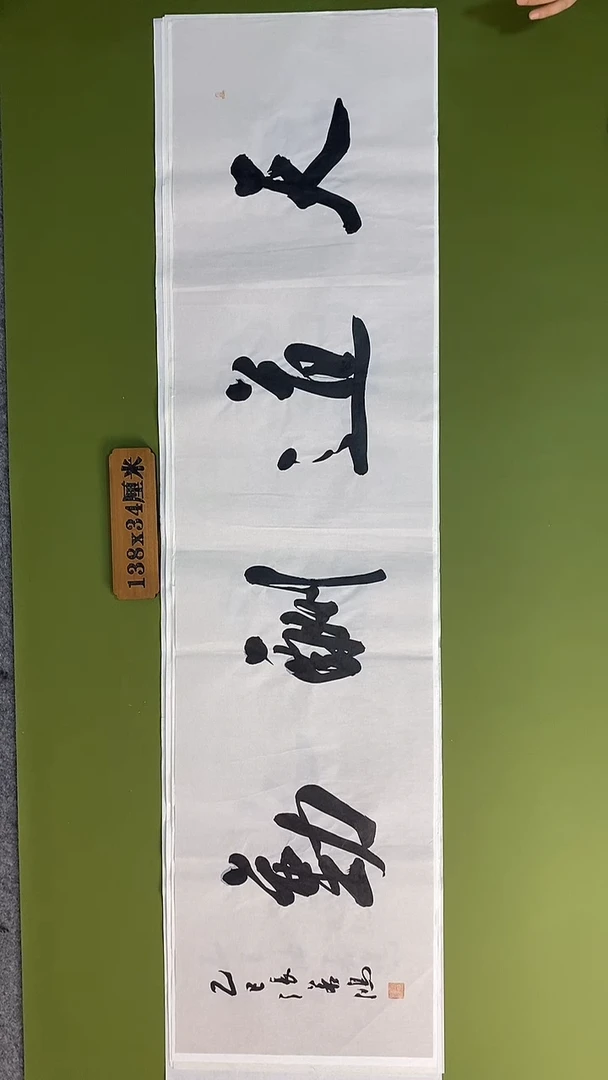 天道酬勤
乙巳
138x34厘米